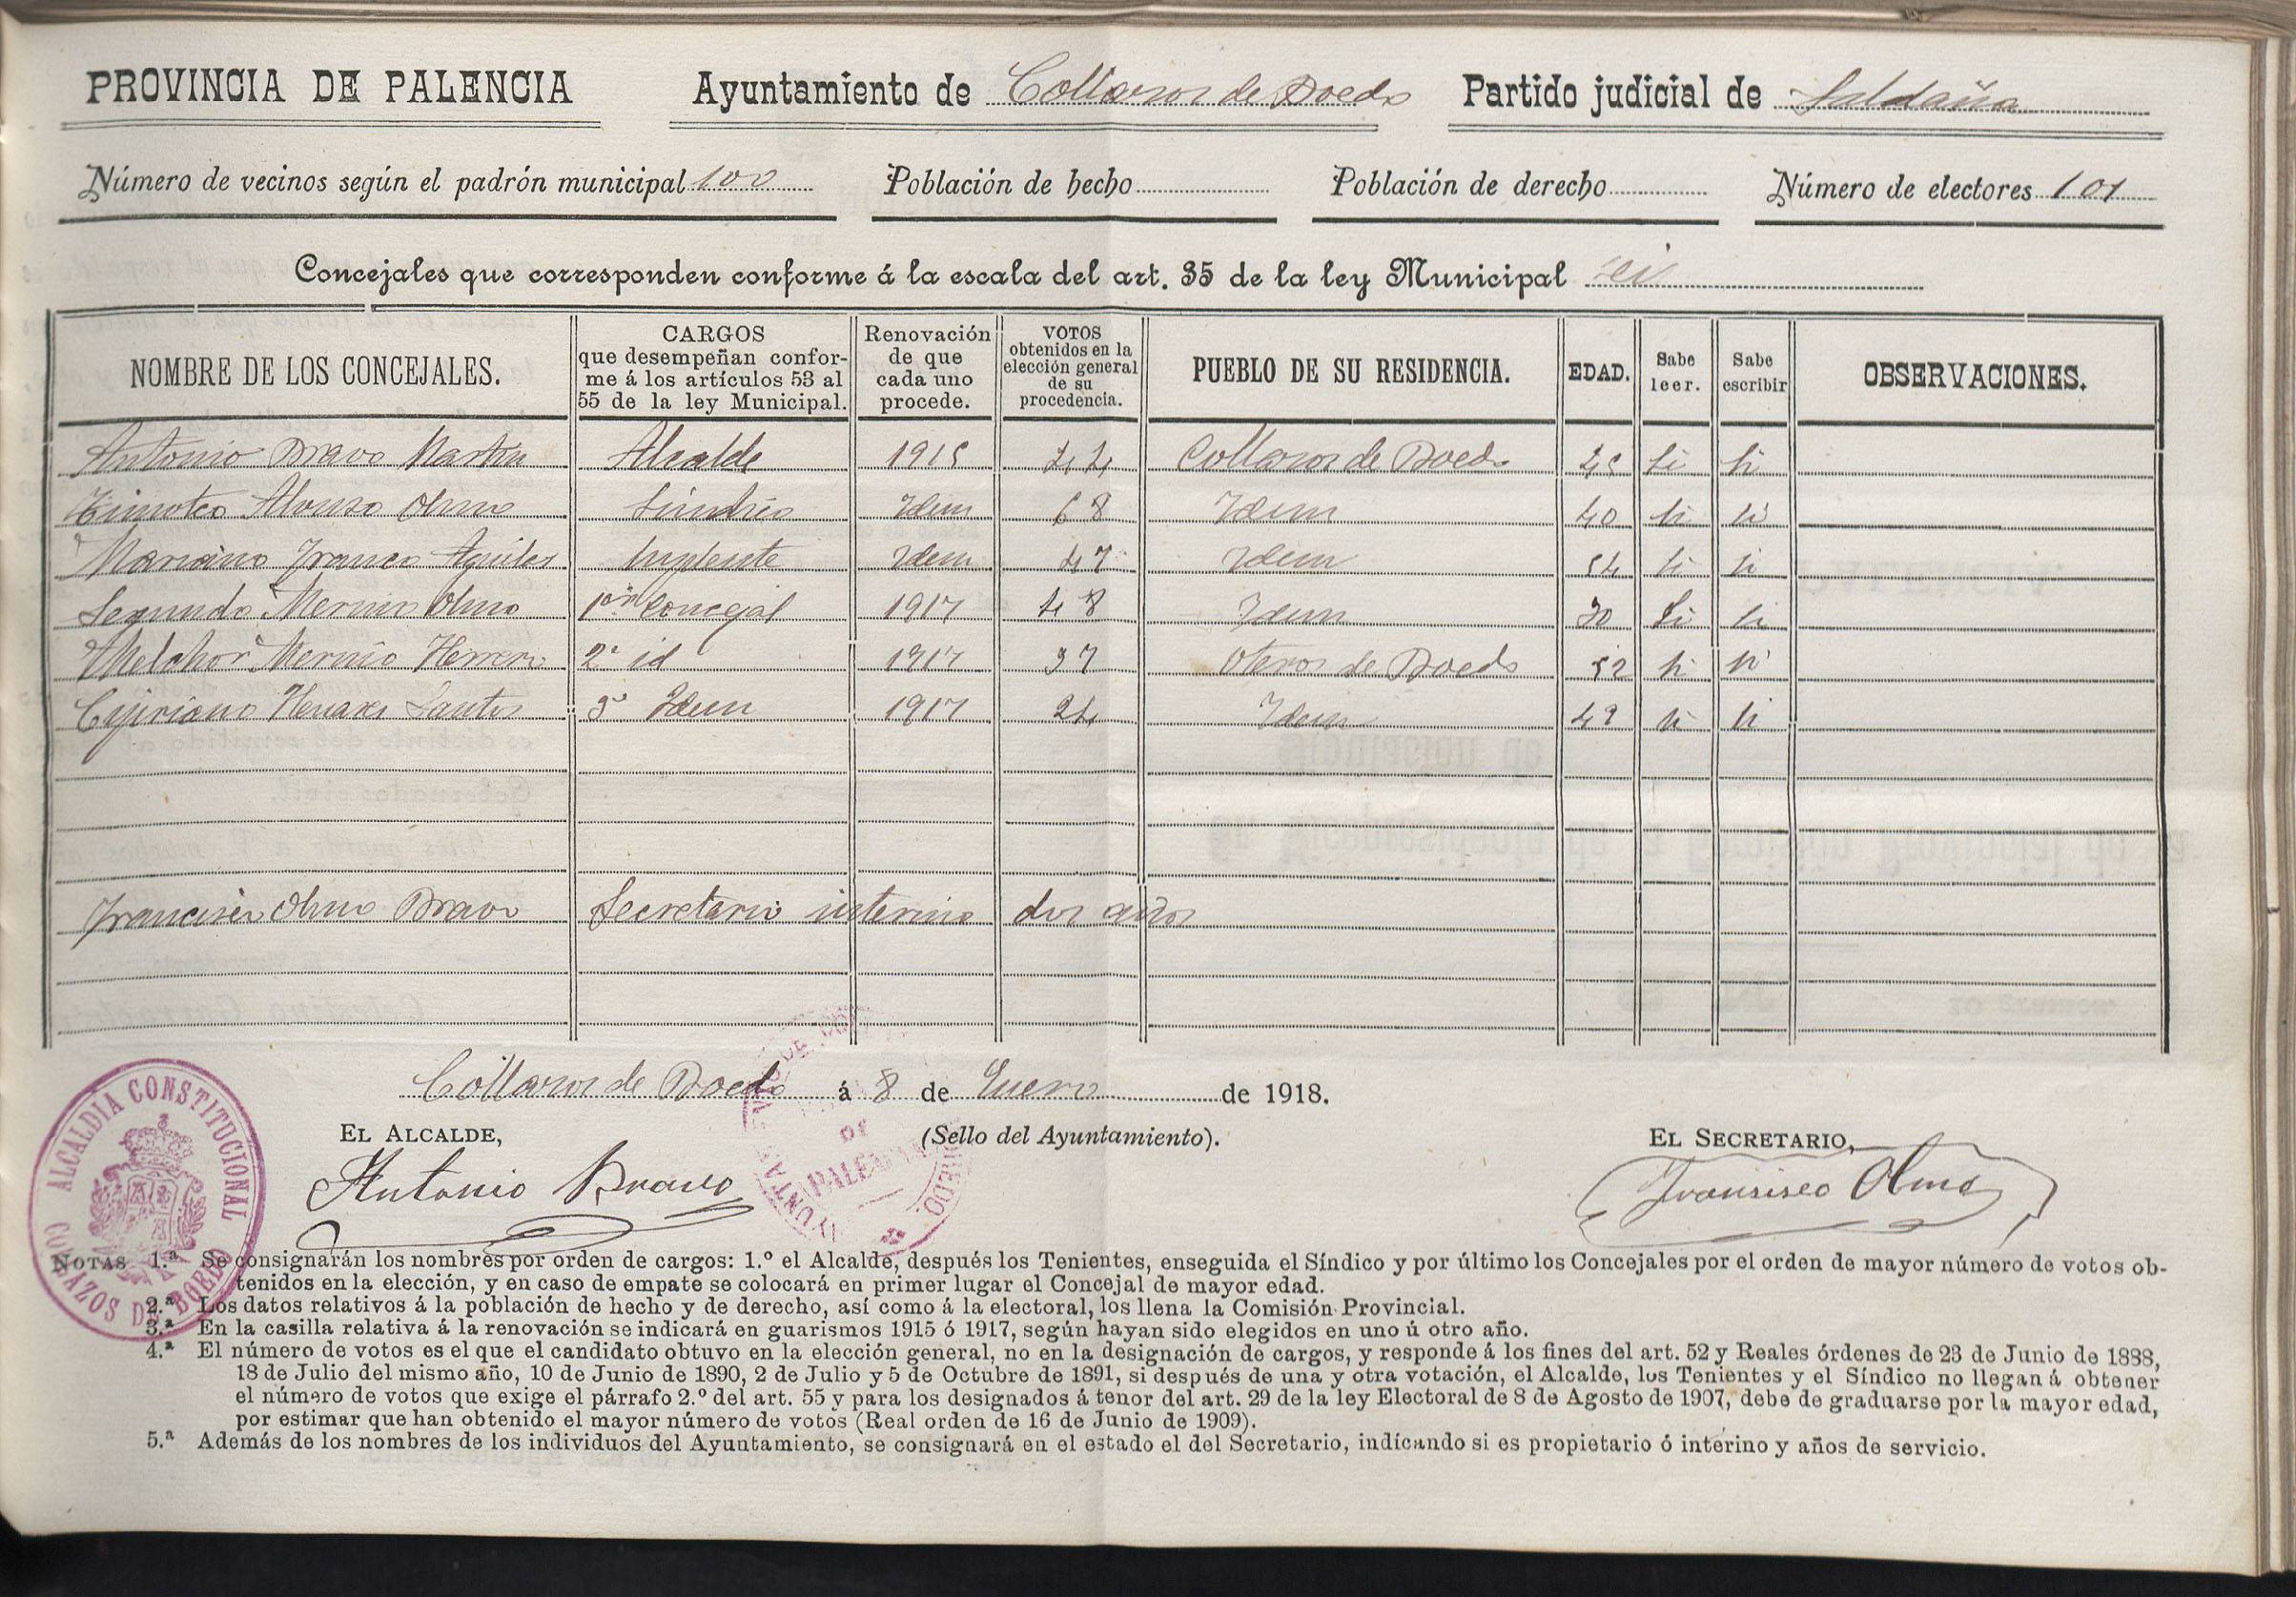 PROVINCIA DE PALENCIA Ayuntamiento de Collazos de Boedo Partido judicial de Saldaña
Número de vecinos según el padrón municipal 100 Población de hecho Población de derecho Número de electores 101
Concejales que corresponden conforme á la escala del art. 35 de la ley Municipal
NOMBRE DE LOS CONCEJALES. CARGOS que desempeñan confor-me á los artículos 53 al 55 de la ley Municipal. Renovación de que cada uno procede. VOTOS obtenidos en la elección general de su procedencia. PUEBLO DE SU RESIDENCIA. EDAD. Sabe leer. Sabe escribir OBSERVACIONES.
Antonio Bravo Martin Alcalde 1915 44 Collazos de Boedo 45 si si
Timoteo Alonso Olmo Sindico Idem 68 Idem 40 si si
Mariano Franco Suplente Idem 47 Idem 54 si si
Segundo Merino Olmo 1er Concejal 1917 48 Idem 30 Si si
Melchor Merino Herrero 2º id 1917 37 Oteros de Boedo 52 si si
Cipriano Henares Santos 3º Idem 1917 24 Idem 42 si si
Francisco Olmo Bravo Secretario interino dos años
Collazos de Boedo á 8 de Enero de 1918.
EL ALCALDE, (Sello del Ayuntamiento). EL SECRETARIO,
Antonio Bravo Fransisco Olmo
ALCALDÍA CONSTITUCIONAL
COLLAZOS DE BOEDO
NOTAS 1.ª Se consignarán los nombres por orden de cargos: 1.º el Alcalde, después los Tenientes, enseguida el Síndico y por último los Concejales por el orden de mayor número de votos ob-
tenidos en la elección, y en caso de empate se colocará en primer lugar el Concejal de mayor edad.
2.ª Los datos relativos á la población de hecho y de derecho, así como á la electoral, los llena la Comisión Provincial.
3.ª En la casilla relativa á la renovación se indicará en guarismos 1915 ó 1917, según hayan sido elegidos en uno ú otro año.
4.ª El número de votos es el que el candidato obtuvo en la elección general, no en la designación de cargos, y responde á los fines del art. 52 y Reales órdenes de 23 de Junio de 1888,
18 de Julio del mismo año, 10 de Junio de 1890, 2 de Julio y 5 de Octubre de 1891, si después de una y otra votación, el Alcalde, los Tenientes y el Síndico no llegan á obtener
el número de votos que exige el párrafo 2.º del art. 55 y para los designados á tenor del art. 29 de la ley Electoral de 8 de Agosto de 1907, debe de graduarse por la mayor edad,
por estimar que han obtenido el mayor número de votos (Real orden de 16 de Junio de 1909).
5.ª Además de los nombres de los individuos del Ayuntamiento, se consignará en el estado el del Secretario, indicando si es propietario ó interino y años de servicio.